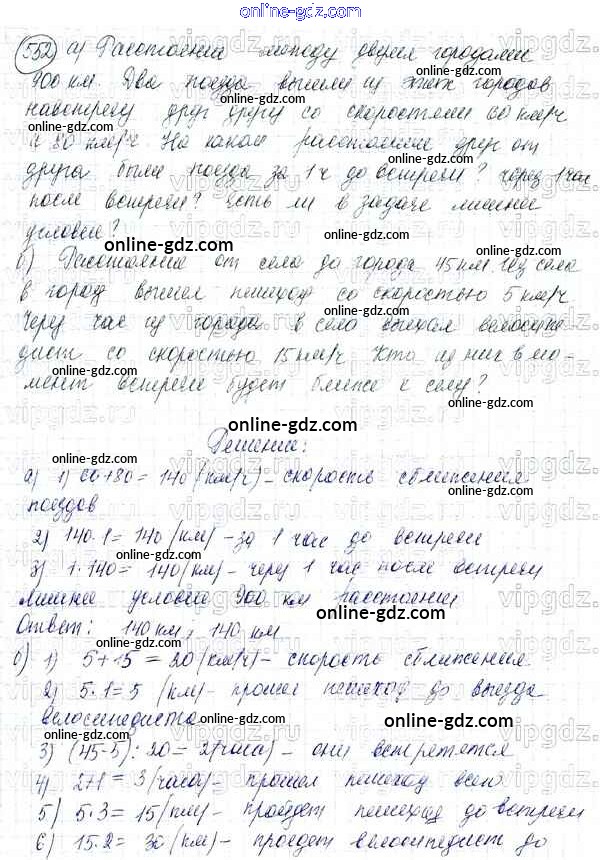 online-gdz.com
552) а) Расстояние между двумя городами
900 км. Два поезда вышли из этих городов
навстречу друг другу со скоростями 60 км/ч
и 80 км/ч. На каком расстоянии друг от
друга были поезда за 1 ч до встречи? через 1 час
после встречи? Есть ли в задаче лишнее
условие?
online-gdz.com
б) Расстояние от села до города 45 км. Из села
в город вышел пешеход со скоростью 5 км/ч.
Через час из города в село выехал велосипе
дист со скоростью 15 км/ч. Кто из них в мо-
мент встречи будет ближе к селу?
online-gdz.com
Решение:
а) 1) 60+80 = 140 (км/ч) – скорость сближения
поездов
2) 140·1 = 140 (км) – за 1 час до встречи
3) 1·140 = 140 (км) – через 1 час после встречи
Лишнее условие 900 км расстояния
Ответ: 140 км; 140 км.
б) 1) 5+15 = 20 (км/ч) – скорость сближения.
2) 5·1 = 5 (км) – прошел пешеход до выезда
велосипедиста
3) (45-5) : 20 = 2 (часа) – они встретятся
4) 2+1 = 3 (часа) – прошел пешеход всего
5) 5·3 = 15 (км) – пройдет пешеход до встречи
6) 15·2 = 30 (км) – проедет велосипедист до